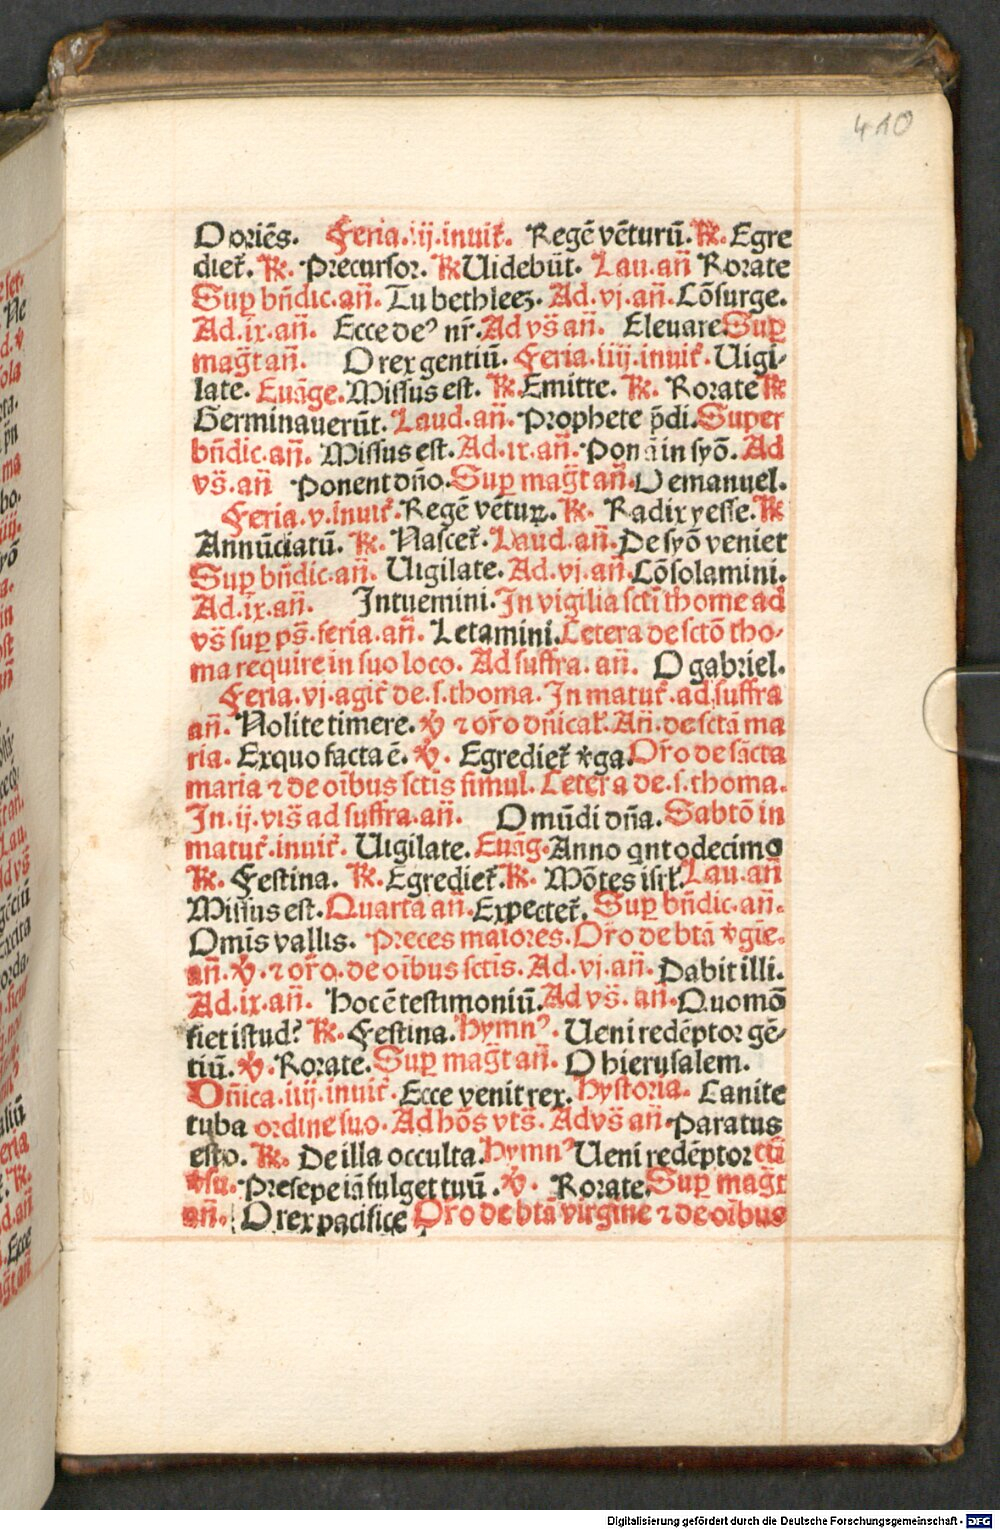 410
O oriēs. Feria.iij.inuit̄. Regē vēturū. ℟. Egre
diet̄. ℟. Precursor. ℟ Uidebūt. Lau.an̄ Rorate
Sup bn̄dic.an̄. Tu bethleez. Ad.vj.an̄. Cōsurge.
Ad.ix.an̄. Ecce deꝰ nr̄. Ad vs̄ an̄. Eleuare. Sup
maḡt an̄. O rex gentiū. Feria.iiij.inuit̄. Uigi-
late. Euāge. Missus est. ℟. Emitte. ℟. Rorate ℟
Germinauerūt. Laud.an̄. Prophete p̄di. Super
bn̄dic.an̄. Missus est. Ad.ix.an̄. Ponā in syō. Ad
vs̄.an̄ Ponent dn̄o. Sup maḡt an̄. O emanuel.
Feria.v.inuit̄. Regē vētuꝝ. ℟. Radix yesse. ℟
Annūciatū. ℟. Nascet̄. Laud.an̄. De syō veniet
Sup bn̄dic.an̄. Uigilate. Ad.vj.an̄. Cōsolamini.
Ad.ix.an̄. Intuemini. In vigilia scti thome ad
vs̄ sup ps̄.feria.an̄. Letamini. Cetera de sctō tho-
ma require in suo loco. Ad suffra.an̄. O gabriel.
Feria.vj.agit̄ de.s.thoma. In matut̄.ad suffra
an̄. Nolite timere. ℣ ⁊ or̄o dn̄ical̄. An̄.de sctā ma
ria. Ex quo facta ē. ℣. Egrediet̄ ƥga. Or̄o de sācta
maria ⁊ de oībus sctīs simul. Cetera de.s.thoma.
In.ij.vis̄ ad suffra.an̄. O mūdi dn̄a. Sabtō in
matut̄.inuit̄. Uigilate. Euāg. Anno qntodecimo
℟. Festina. ℟. Egrediet̄. ℟. Mōtes isrl̄. Lau.an̄
Missus est. Quarta an̄. Expectet̄. Sup bn̄dic.an̄.
Omīs vallis. Preces maiores. Or̄o de btā ƥgīe.
an̄. ℣. ⁊ or̄o. de oībus sctīs. Ad.vj.an̄. Dabit illi.
Ad.ix.an̄. Hoc ē testimoniū. Ad vs̄. an̄. Quomō
fiet istud? ℟. Festina. Hymnꝰ. Ueni redēptor gē-
tiū. ℣. Rorate. Sup maḡt an̄. O hierusalem.
Dn̄ica.iiij.inuit̄. Ecce venit rex. Hystoria. Canite
tuba ordine suo. Ad hōs vts̄. Ad vs̄ an̄. Paratus
esto. ℟. De illa occulta. Hymnꝰ Ueni redēptor cū
℣su. Presepe iā fulget tuū. ℣. Rorate. Sup maḡt
an̄. O rex pacifice Or̄o de btā virgine ⁊ de oībus
Digitalisierung gefördert durch die Deutsche Forschungsgemeinschaft - DFG